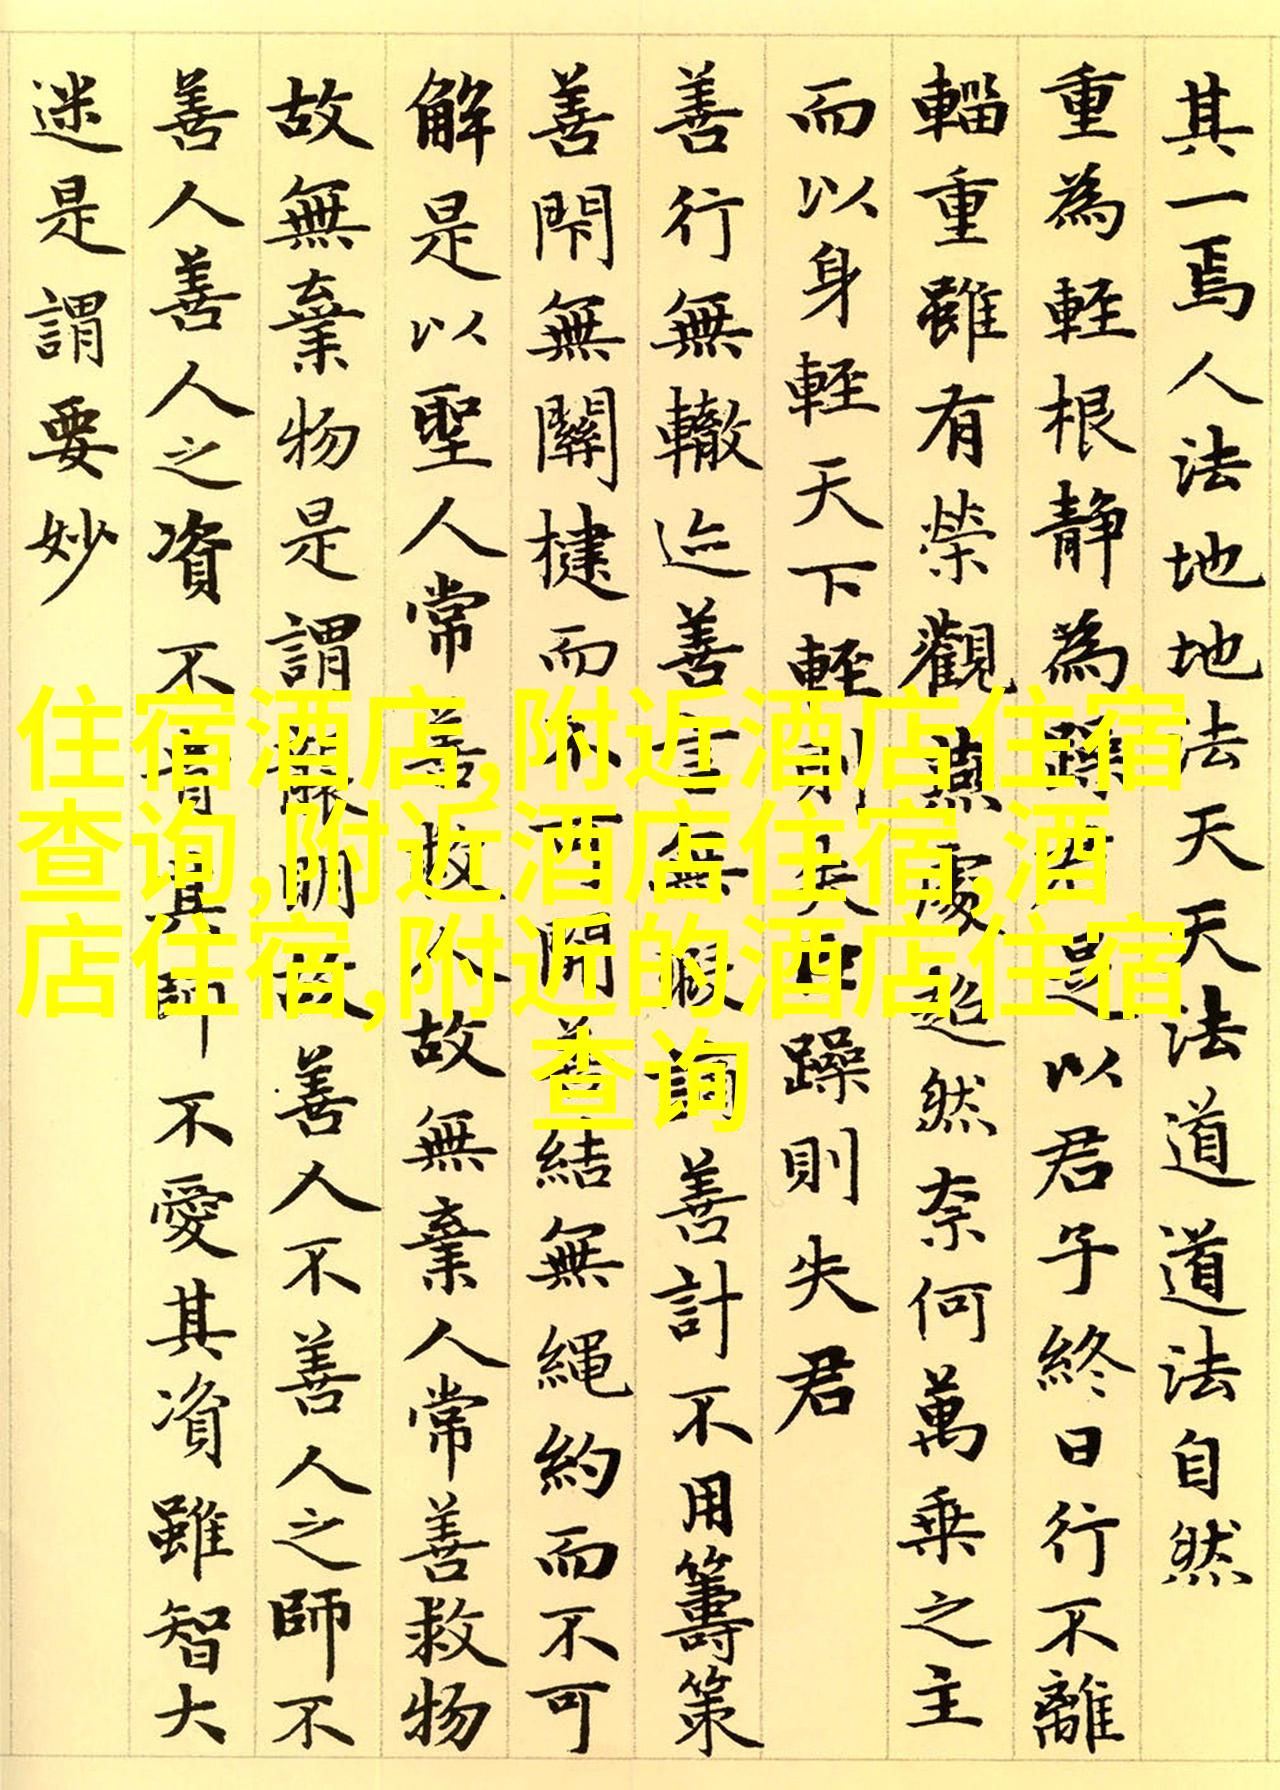 其一焉人法地地法天天法道道法自然
重為輕根靜為躁君是以君子終日行不離
輜重雖有榮觀燕處超然奈何萬乘之主
而以身輕天下輕則失臣躁則失君
善行無轍迹善言無瑕謫善計不用籌策
善閇無關楗而不可開善結無繩約而不可
解是以聖人常善救人故無棄人常善救物
故無棄物是謂襲明故善人不善人之師不
善人善人之資不貴其師不愛其資雖智大
迷是謂要妙
住宿酒店,附近酒店住宿
查询,附近酒店住宿,酒
店住宿,附近的酒店住宿
查询